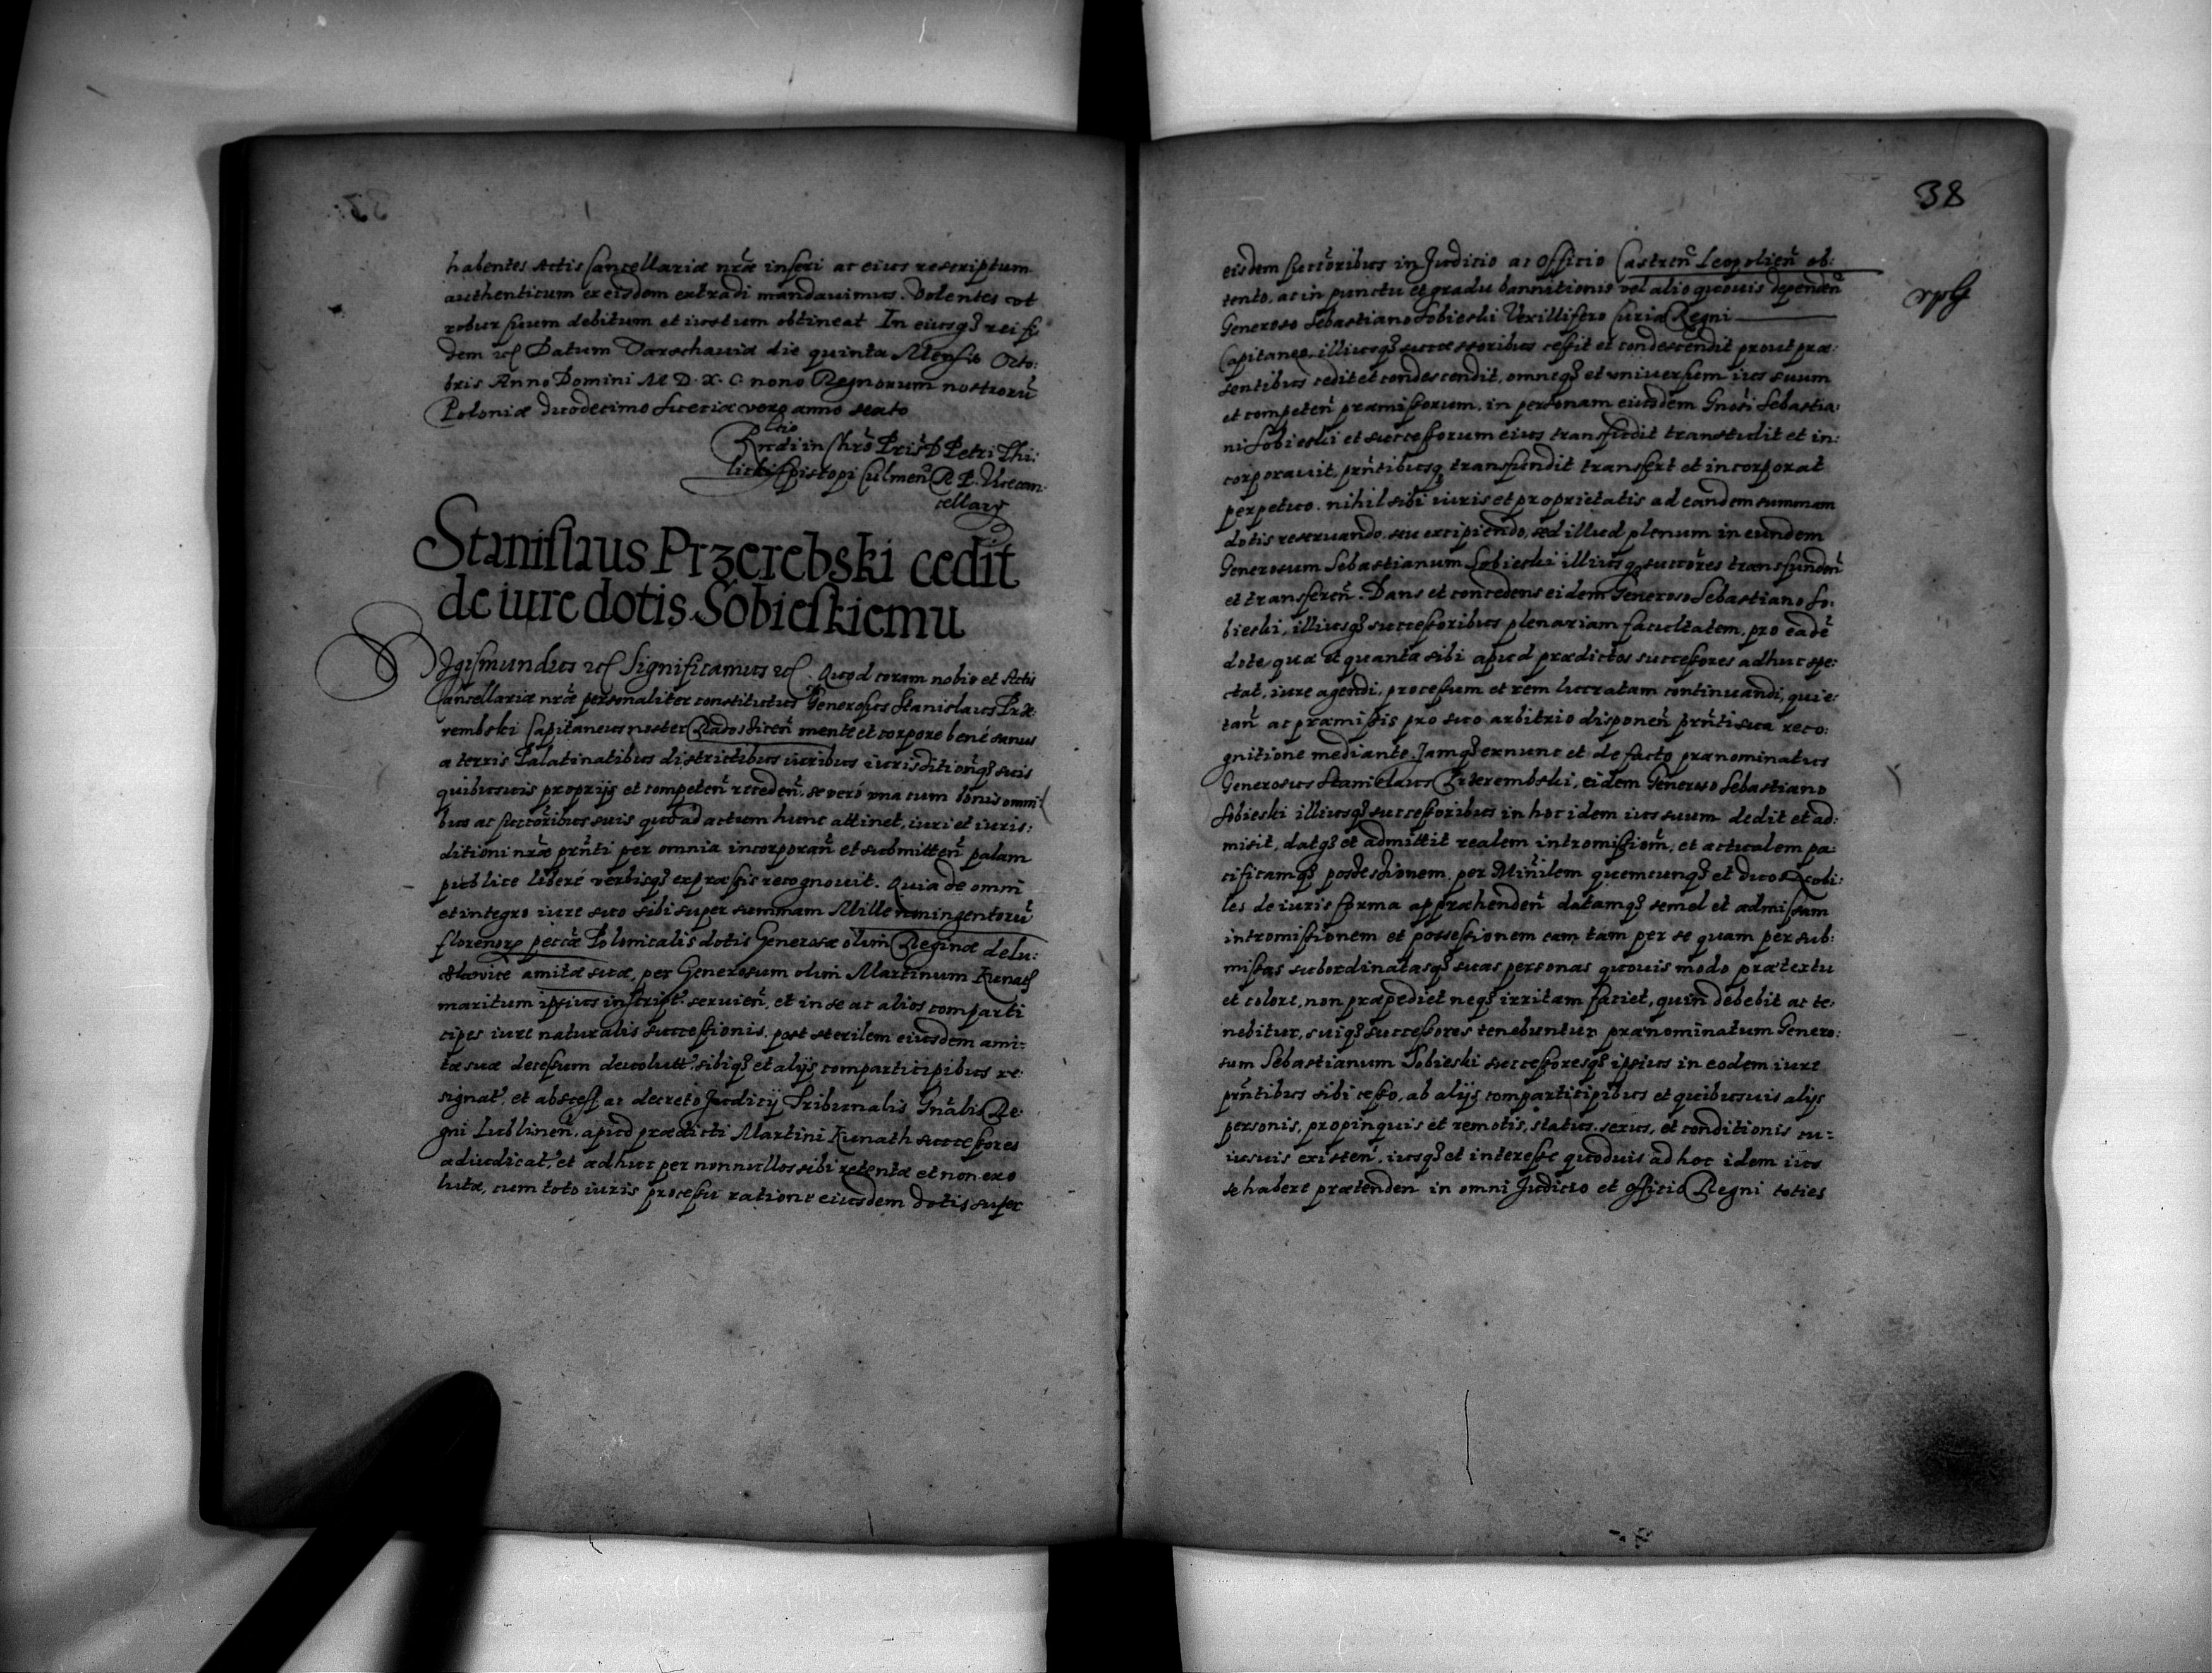 habentes Actis Cancellariæ nr̃æ inseri ac eius rescriptum
authenticum ex eisdem extradi mandauimus. Volentes vt
robur suum debitum et iustum obtineat In eiusq₃ rei fi-
dem ꝛc̃ Datum Varschauiæ die quinta Mensis Octo:
bris Anno Domini M D. X. C. nono Regnorum nostrorũ
Poloniæ duodecimo Sueciæ vero anno sexto
Rndi in Chrõ Pris D Petri Thi:
licki Episcopi Culmeñ R P. Vicecan-
cellarÿ
Stanislaus Przerebski cedit
de iure dotis Sobieskiemu
Sigismundus ꝛc̃ Significamus ꝛc̃. Quod coram nobis et Actis
Cancellariæ nr̃æ personaliter constitutus Generosus Stanislaus Prze-
rembski Capitaneus noster Radosticeñ mente et corpore bené sanus
a terris Palatinatibus districtibus iuribus iurisditioñq₃ suis
quibusuis proprijs et competeñ recedeñ, se veró vna cum bonis omni:
bus ac succõribus suis quo ad actum hunc attinet, iuri et iuris:
ditioni nr̃æ pr̃nti per omnia incorporañ et submitteñ palam
publice liberé verbisq₃ expræssis recognouit. Quia de omni
et integro iure suo sibi super summam Mille noningentorũ
florenorꝝ peccæ̃ Polonicalis dotis Generosæ olim Reginæ de Lu:
sławice amitæ suæ, per Generosum olim Martinum Kunath
maritum ipsius inscript. seruieñ, et in se ac alios comparti
cipes iure naturalis successionis, post sterilem eiusdem ami:
tæ suæ decessum deuolutæ, sibiq₃ et alijs comparticipibus re:
signat, et abscess, ac decreto Judicij Tribunalis Gnãlis Re:
gni Lublineñ, apud prædicti Martini Kunath successores
adiudicat, et adhuc per nonnullos sibi retentæ et non exo
lutæ, cum toto iuris processu ratione eiusdem dotis super
38
eisdem succõribus in Juditio ac Officio Castreñ Leopolieñ ob:
tento, ac in punctu et gradu bannitionis vel alio quouis dependeñ
Generoso Sebastiano Sobieski Vexillifero Curiæ Regni
Capitaneo, illiusq₃ successoribus cessit et condescendit prout præ:
sentibus cedit et condescendit, omneq₃ et vniuersum ius suum
et competeñ præmissorum, in personam eiusdem Gnõsi Sebastia:
ni Sobieski et successorum eius transfudit transtulit et in:
corporauit, pr̃ntibusq₃ transfundit transfert et incorporat
perpetuo. nihil sibi iuris et proprietatis ad eandem summam
dotis reseruando, seu excipiendo, sed illud plenum in eundem
Generosum Sebastianum Sobieski illiusq₃ succõres transfundeñ
et transfereñ. Dans et concedens eidem Generoso Sebastiano So:
bieski, illiusq₃ successoribus plenariam facultatem, pro eadẽ
dote quæ et quanta sibi apud prædictos successores adhuc spe:
ctat, iure agendi, processum et rem lucratam continuandi, quie:
tañ ac præmissis pro suo arbitrio disponeñ pr̃nti sua reco:
gnitione mediante. Jamq₃ ex nunc et de facto prænominatus
Generosus Stanislaus Przerembski, eidem Generoso Sebastiano
Sobieski illiusq₃ successoribus in hoc idem ius suum dedit et ad:
misit, datq₃ et admittit realem intromissioñ, et actualem pa:
cificamq₃ possessionem, per Miñilem quemcunq₃ et duos Nobi:
les de iuris forma appræhendeñ datamq₃ semel et admissam
intromissionem et possessionem eam tam per se quam per sub:
missas subordinatasq₃ suas personas quouis modo prætextu
et colore, non præpediet neq₃ irritam faciet, quin debebit ac te:
nebitur, suiq₃ successores tenebuntur prænominatum Genero:
sum Sebastianum Sobieski successoresq₃ ipsius in eodem iure
pr̃ntibus sibi cesso, ab alijs comparticipibus et quibusuis alijs
personis, propinquis et remotis, status, sexus, et conditionis cu:
iusuis existeñ, iusq₃ et interesse quoduis ad hoc idem ius
se habere prætenden in omni Juditio et officio Regni toties